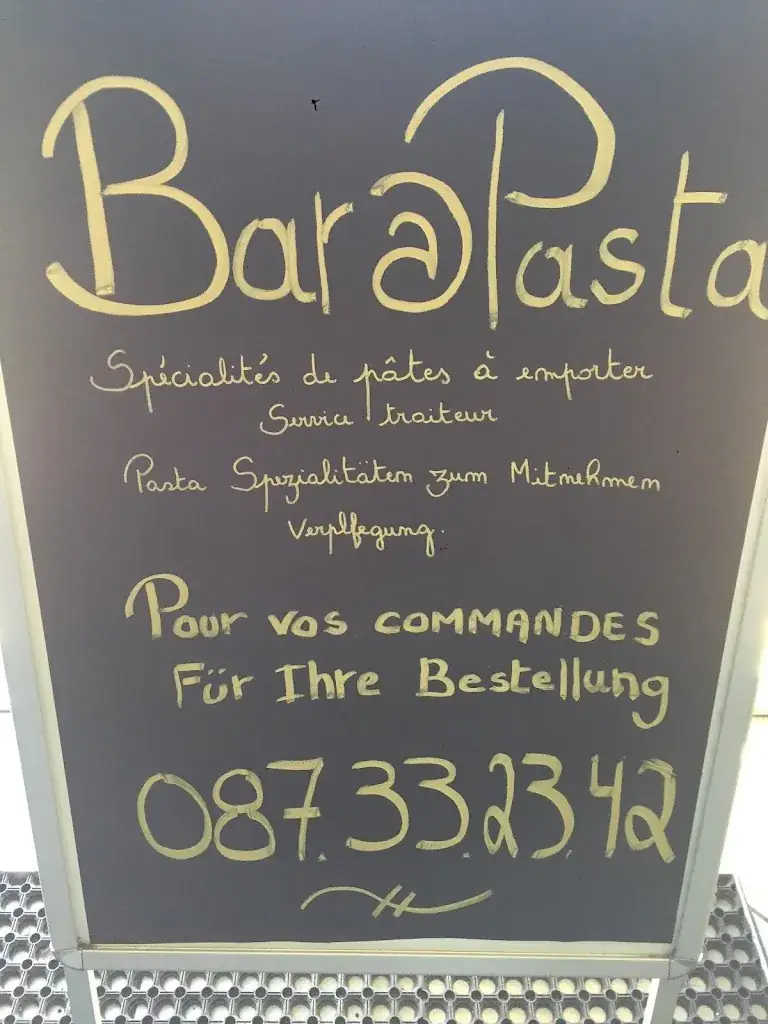 Bar@Pasta
Spécialités de pâtes à emporter
Service traiteur
Pasta Spezialitäten zum Mitnehmen
Verplfegung.
Pour vos COMMANDES
Für Ihre Bestellung
087.33.23.42